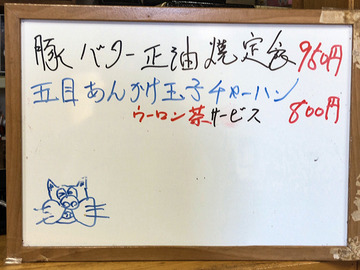 豚バター正油焼定食 950円
五目あんかけ玉子チャーハン
ウーロン茶サービス 800円